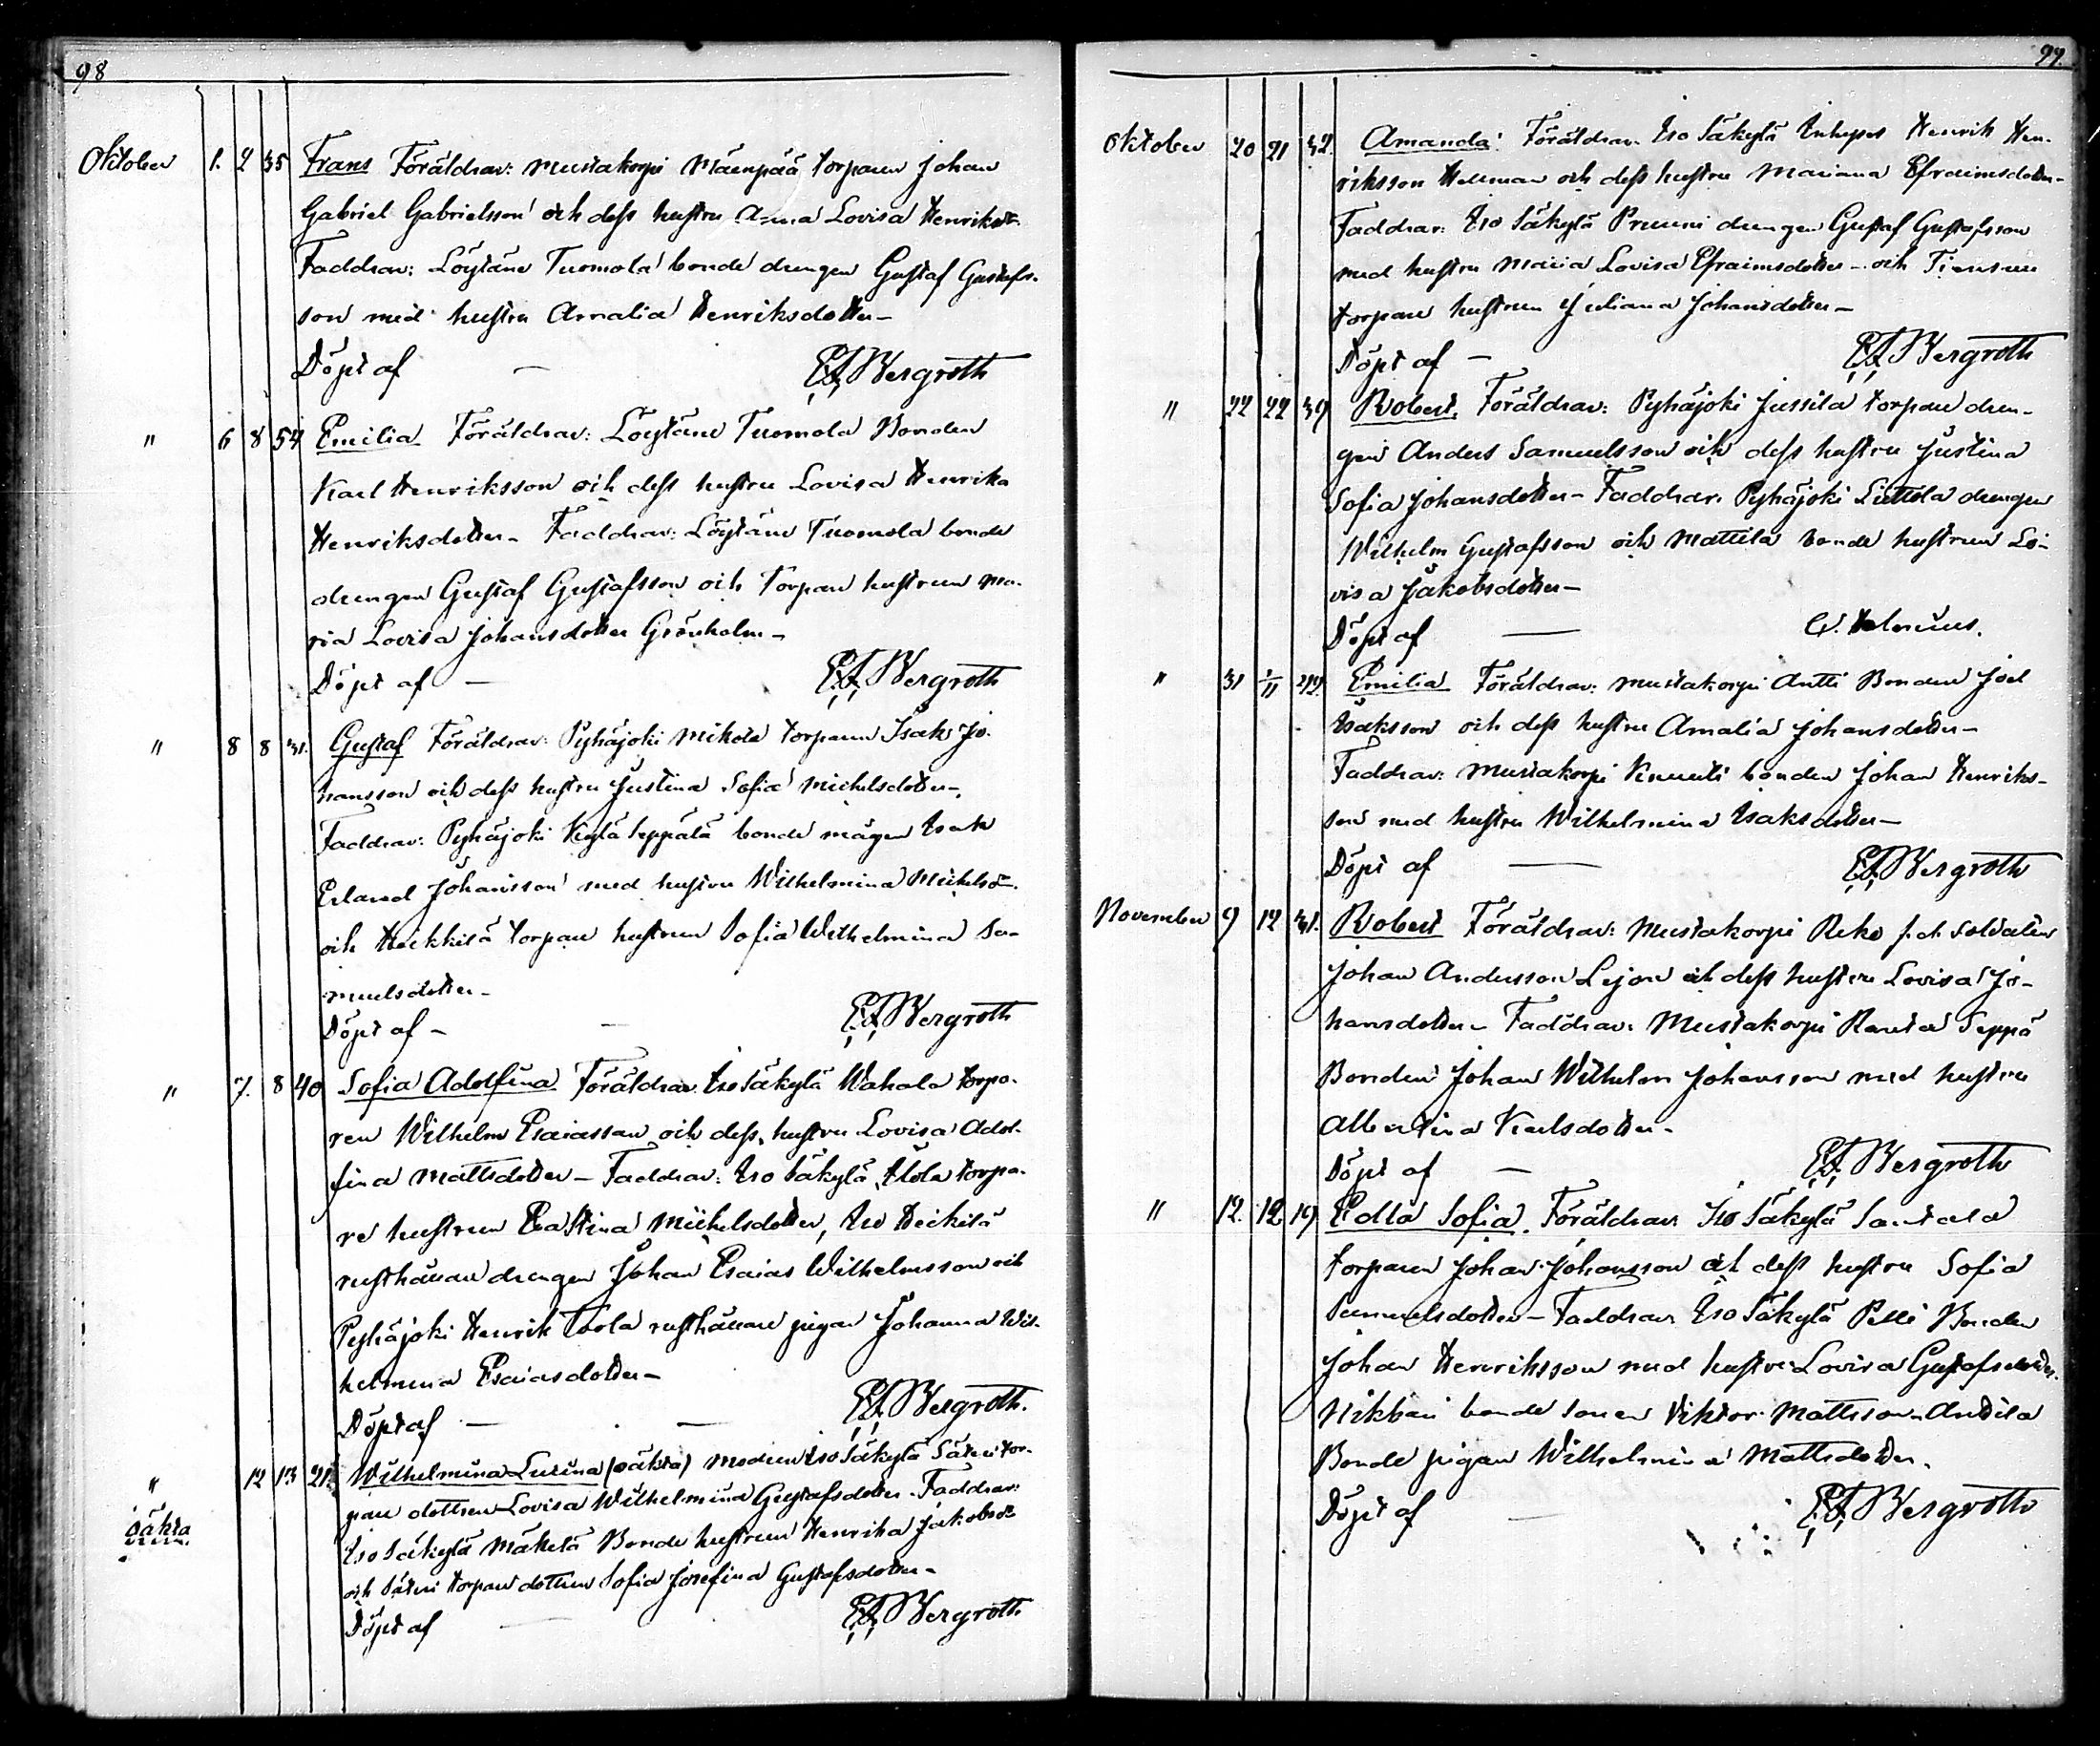 98
Oktober 1. 2 35 Frans Föräldrar: Mustakorpi Mäenpää torparen Johan
Gabriel Gabrielsson och dess hustru Anna Lovisa Henriksdr
Faddrar: Löytäne Tuomola bonde drengen Gustaf Gustafs-
son med hustru Amalia Henriksdotter –
Döpt af – E.F. Bergroth
" 6 8 54 Emilia Föräldrar: Löytäne Tuomola Bonden
Karl Henriksson och dess hustru Lovisa Henrika
Henriksdotter – Faddrar: Löytäne Tuomola bonde
drengen Gustaf Gustafsson och Torpare hustrun Ma-
ria Lovisa Johansdotter Grönholm –
Döpt af – E.F. Bergroth
" 8 8 31. Gustaf Föräldrar: Pyhäjoki Mikola torparen Isak Jo-
hansson och dess hustru Justina Sofia Michelsdotter –
Faddrar: Pyhäjoki Kylä Seppälä bonde mågen Isak
Erland Johansson med hustru Wilhelmina Michelsdr
och Heikkilä torpare hustrun Sofia Wilhelmina Sa-
muelsdotter –
Döpt af – E.F. Bergroth
" 7. 8 40 Sofia Adolfina Föräldrar: Iso Säkylä Wahala torpa-
ren Wilhelm Esaiasson och dess hustru Lovisa Adol-
fina Mattsdotter – Faddrar: Iso Säkylä Ylola torpa-
re hustrun Eva Stina Michelsdotter, Iso Heikilä
rusthållare drengen Johan Esaias Wilhelmsson och
Pyhäjoki Henrik Toola rusthållare pigan Johanna Wil-
helmina Esaiasdotter –
Döpt af – E.F. Bergroth.
" 12 13 21. Wilhelmina Lusina (oäkta) Modren Iso Säkylä Säteri tor-
oäkta
pare dottren Lovisa Wilhelmina Gustafsdotter. Faddrar:
Iso Säkylä Mäkelä Bonde hustrun Henrika Jakobsdr
och Säteri torpare dottren Sofia Josefina Gustafsdotter –
Döpt af E.F. Bergroth
99.
Oktober 20 21 32. Amanda: Föräldrar: Iso Säkylä Inhyses Henrik Hen-
riksson Hellman och dess hustru Mariana Efraimsdotter –
Faddrar: Iso Säkylä Pruuni drengen Gustaf Gustafsson
med hustru Maria Lovisa Efraimsdotter – och
torpare hustrun Juliana Johansdotter –
Döpt af – E.F. Bergroth
" 22 22 39 Robert. Föräldrar: Pyhäjoki Jussila torpare dren-
gen Anders Samuelsson och dess hustru Justina
Sofia Johansdotter – Faddrar: Pyhäjoki Luttola drengen
Wilhelm Gustafsson och Mattila bonde hustrun Lo-
visa Jakobsdotter –
Döpt af –
" 31 2/11 Emilia Föräldrar: Mustakorpi Antti Bonden Joel
Isaksson och dess hustru Amalia Johansdotter –
Faddrar: Mustakorpi Knuuti bonden Johan Henriks-
son med hustru Wilhelmina Isaksdotter –
Döpt af – E.F. Bergroth
November 9 12 31. Robert Föräldrar: Mustakorpi Reko f.d. Soldaten
Johan Andersson Lejon och dess hustru Lovisa Jo-
hansdotter – Faddrar: Mustakorpi Ranta Seppä
Bonden Johan Wilhelm Johansson med hustru
Albertina Karlsdotter –
Döpt af – E.F. Bergroth
" 12. 12 19 Edla Sofia. Föräldrar: Iso Säkylä Santala
torparen Johan Johansson och dess hustru Sofia
Samuelsdotter – Faddrar: Iso Säkylä Pelli Bonden
Johan Henriksson med hustru Lovisa Gustafsdotter.
Nikkari bonde sonen Viktor Mattsson – Andila
Bonde pigan Wilhelmina Mattsdotter.
Döpt af E.F. Bergroth